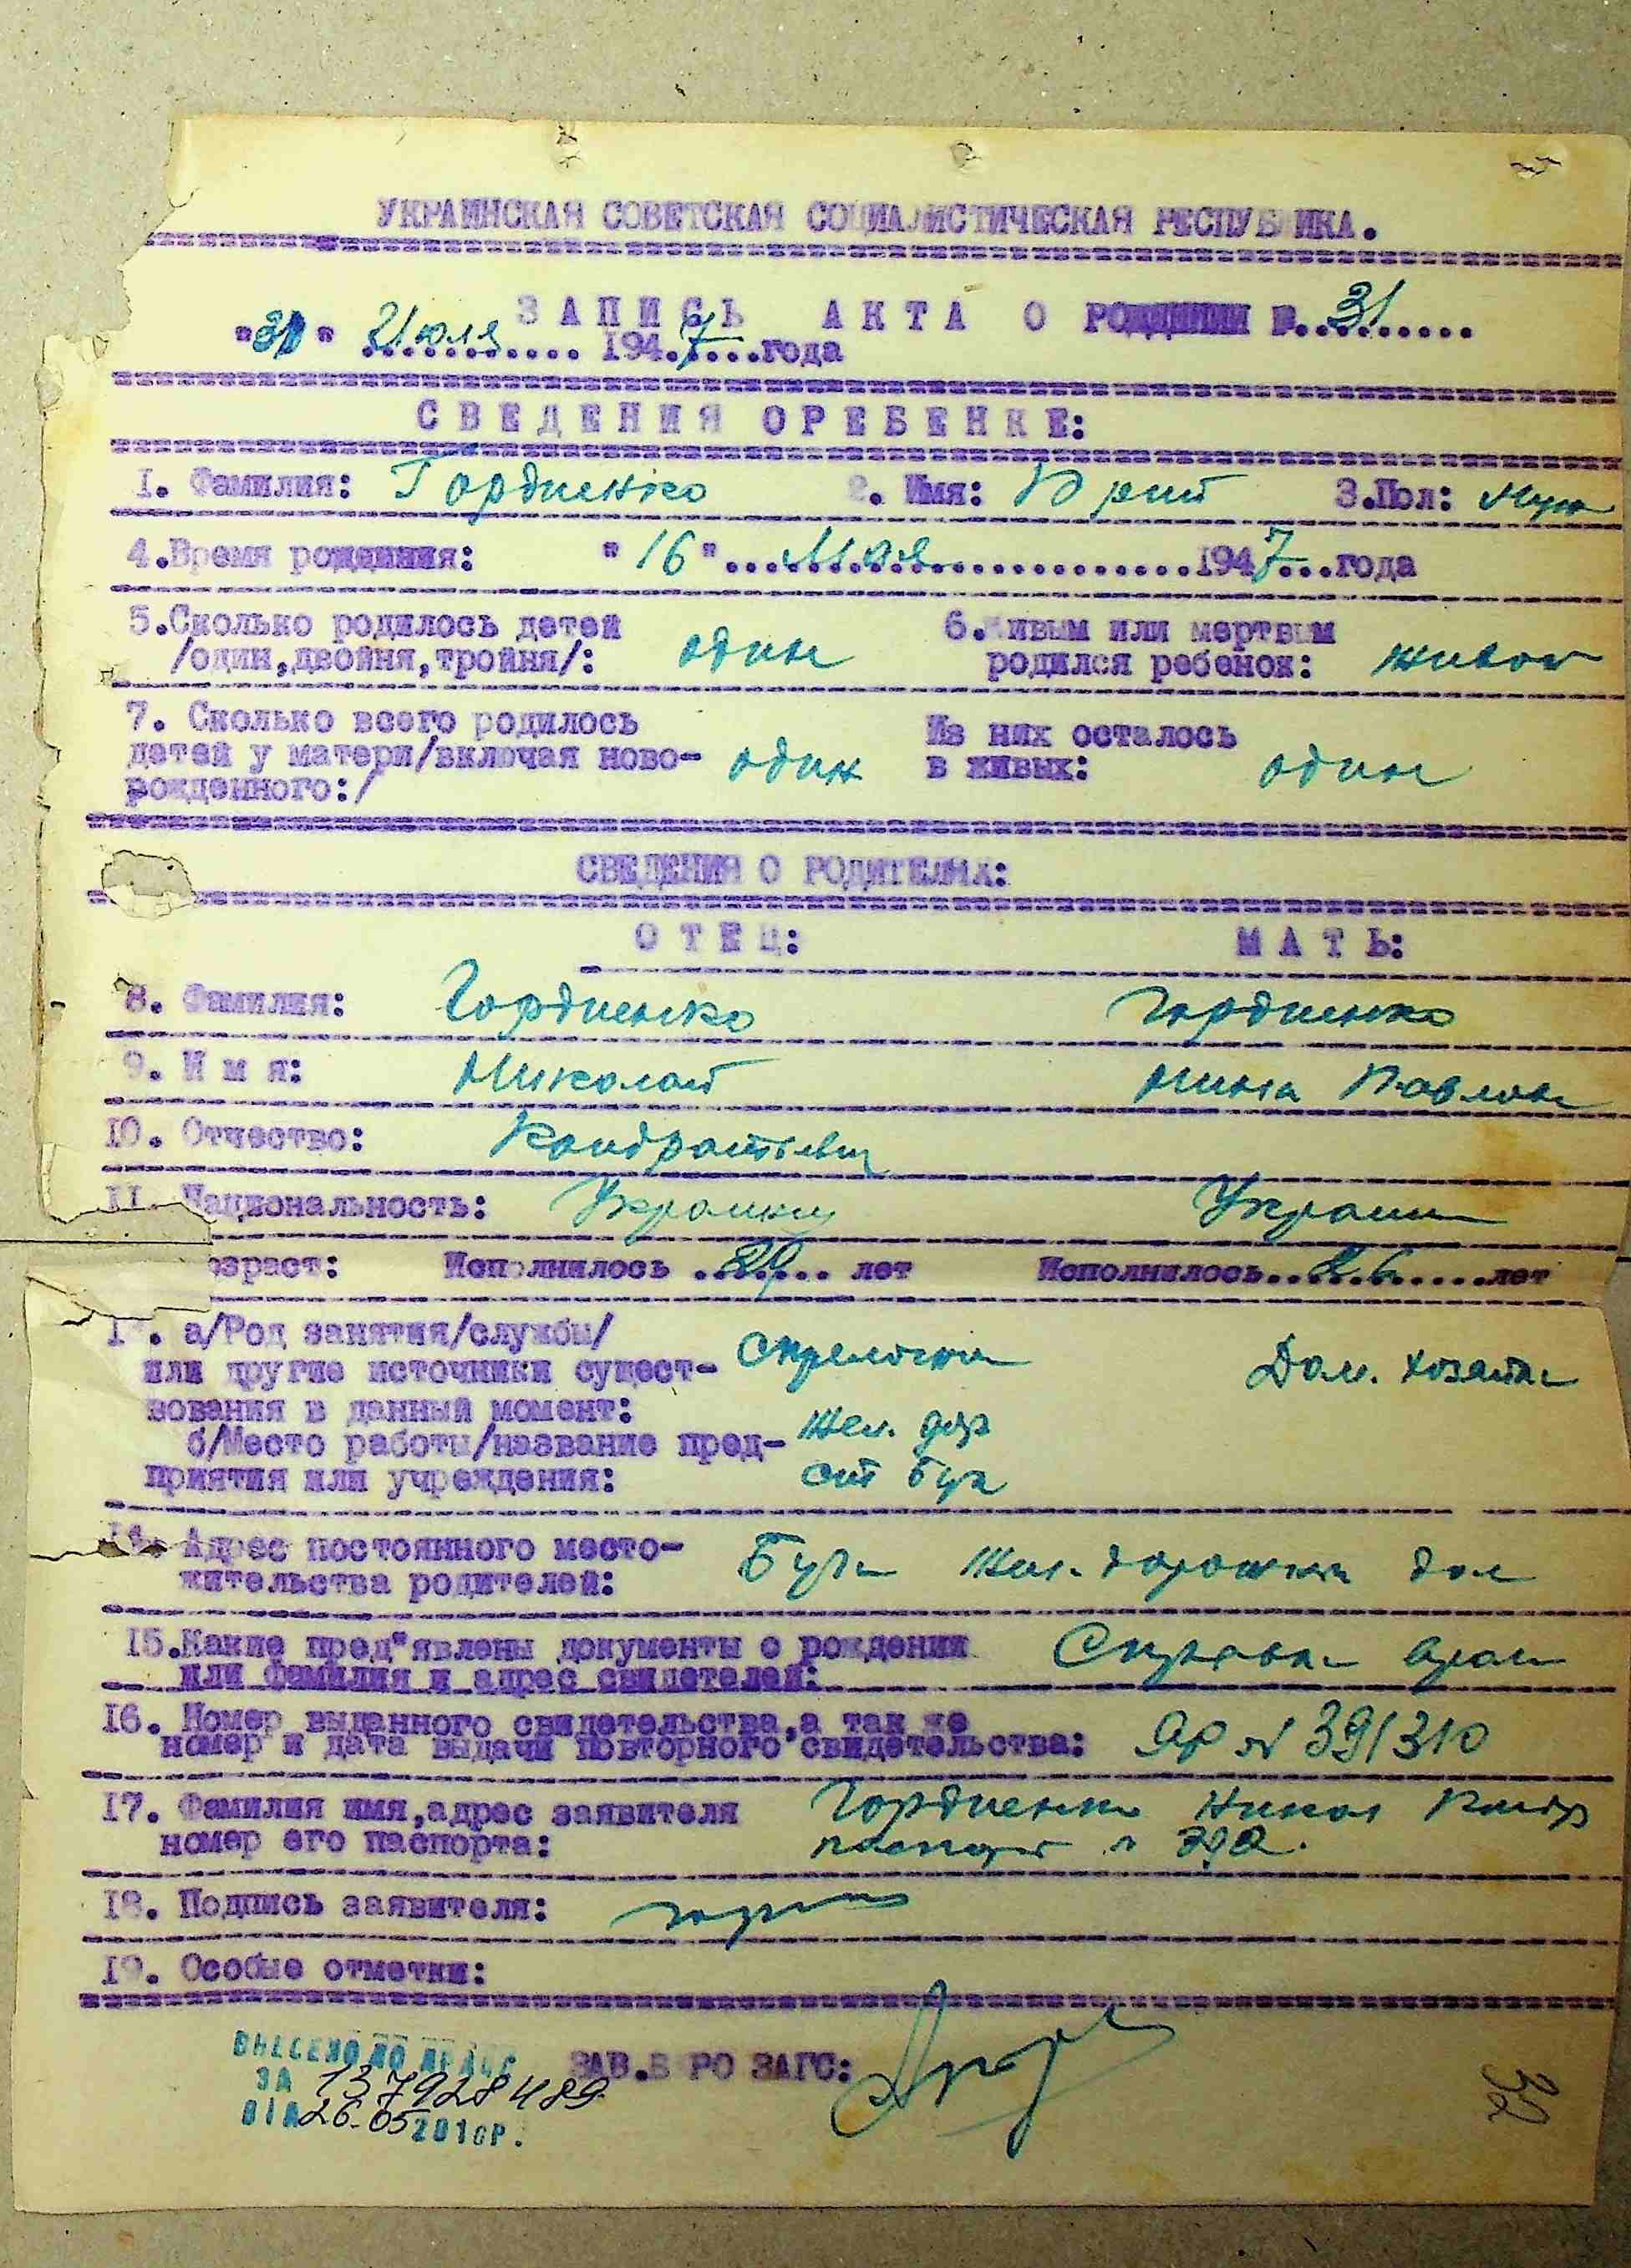 УКРАИНСКАЯ СОВЕТСКАЯ СОЦИАЛИСТИЧЕСКАЯ РЕСПУБЛИКА.
ЗАПИСЬ АКТА О РОЖДЕНИИ №. 31
" " 194 7 года
СВЕДЕНИЯ О РЕБЕНКЕ:
1. Фамилия: Гордиенко 2. Имя: Юрий 3.Пол: муж
4.Время рождения: "16" мая 1947 года
5.Сколько родилось детей 6.Живым или мертвым
/один,двойня,тройня/: один родился ребенок: живой
7. Сколько всего родилось Из них осталось
детей у матери/включая ново- один в живых: один
рожденного:/
СВЕДЕНИЯ О РОДИТЕЛЯХ:
ОТЕЦ: МАТЬ:
8. Фамилия: Гордиенко Гордиенко
9. Имя: Николай Нина Павловн
10. Отчество: Кондратьевич
11. Национальность: Украинец Украин
озраст: Исполнилось 29 лет Исполнилось 26 лет
а/Род занятия/службы/
или другие источники сущест- Стрелочник Дом. хозяйка
вования в данный момент:
б/Место работы/название пред- Жел. дор
приятия или учреждения: ст Буг
14. Адрес постоянного место-
жительства родителей: жел. дорожн дом
15.Какие пред"явлены документы о рождении Справка врача
или фамилия и адрес свидетелей:
16. Номер выданного свидетельства,а так же
номер и дата выдачи повторного свидетельства: ЯР № 391310
17. Фамилия имя,адрес заявителя Гордиенко Никол Кондр
номер его паспорта: паспорт
18. Подпись заявителя:
19. Особые отметки:
ВНЕСЕНО ДО ДРАЦС ЗАВ.БЮРО ЗАГС:
ЗА 137928489
ВІД 26.05 2010Р.